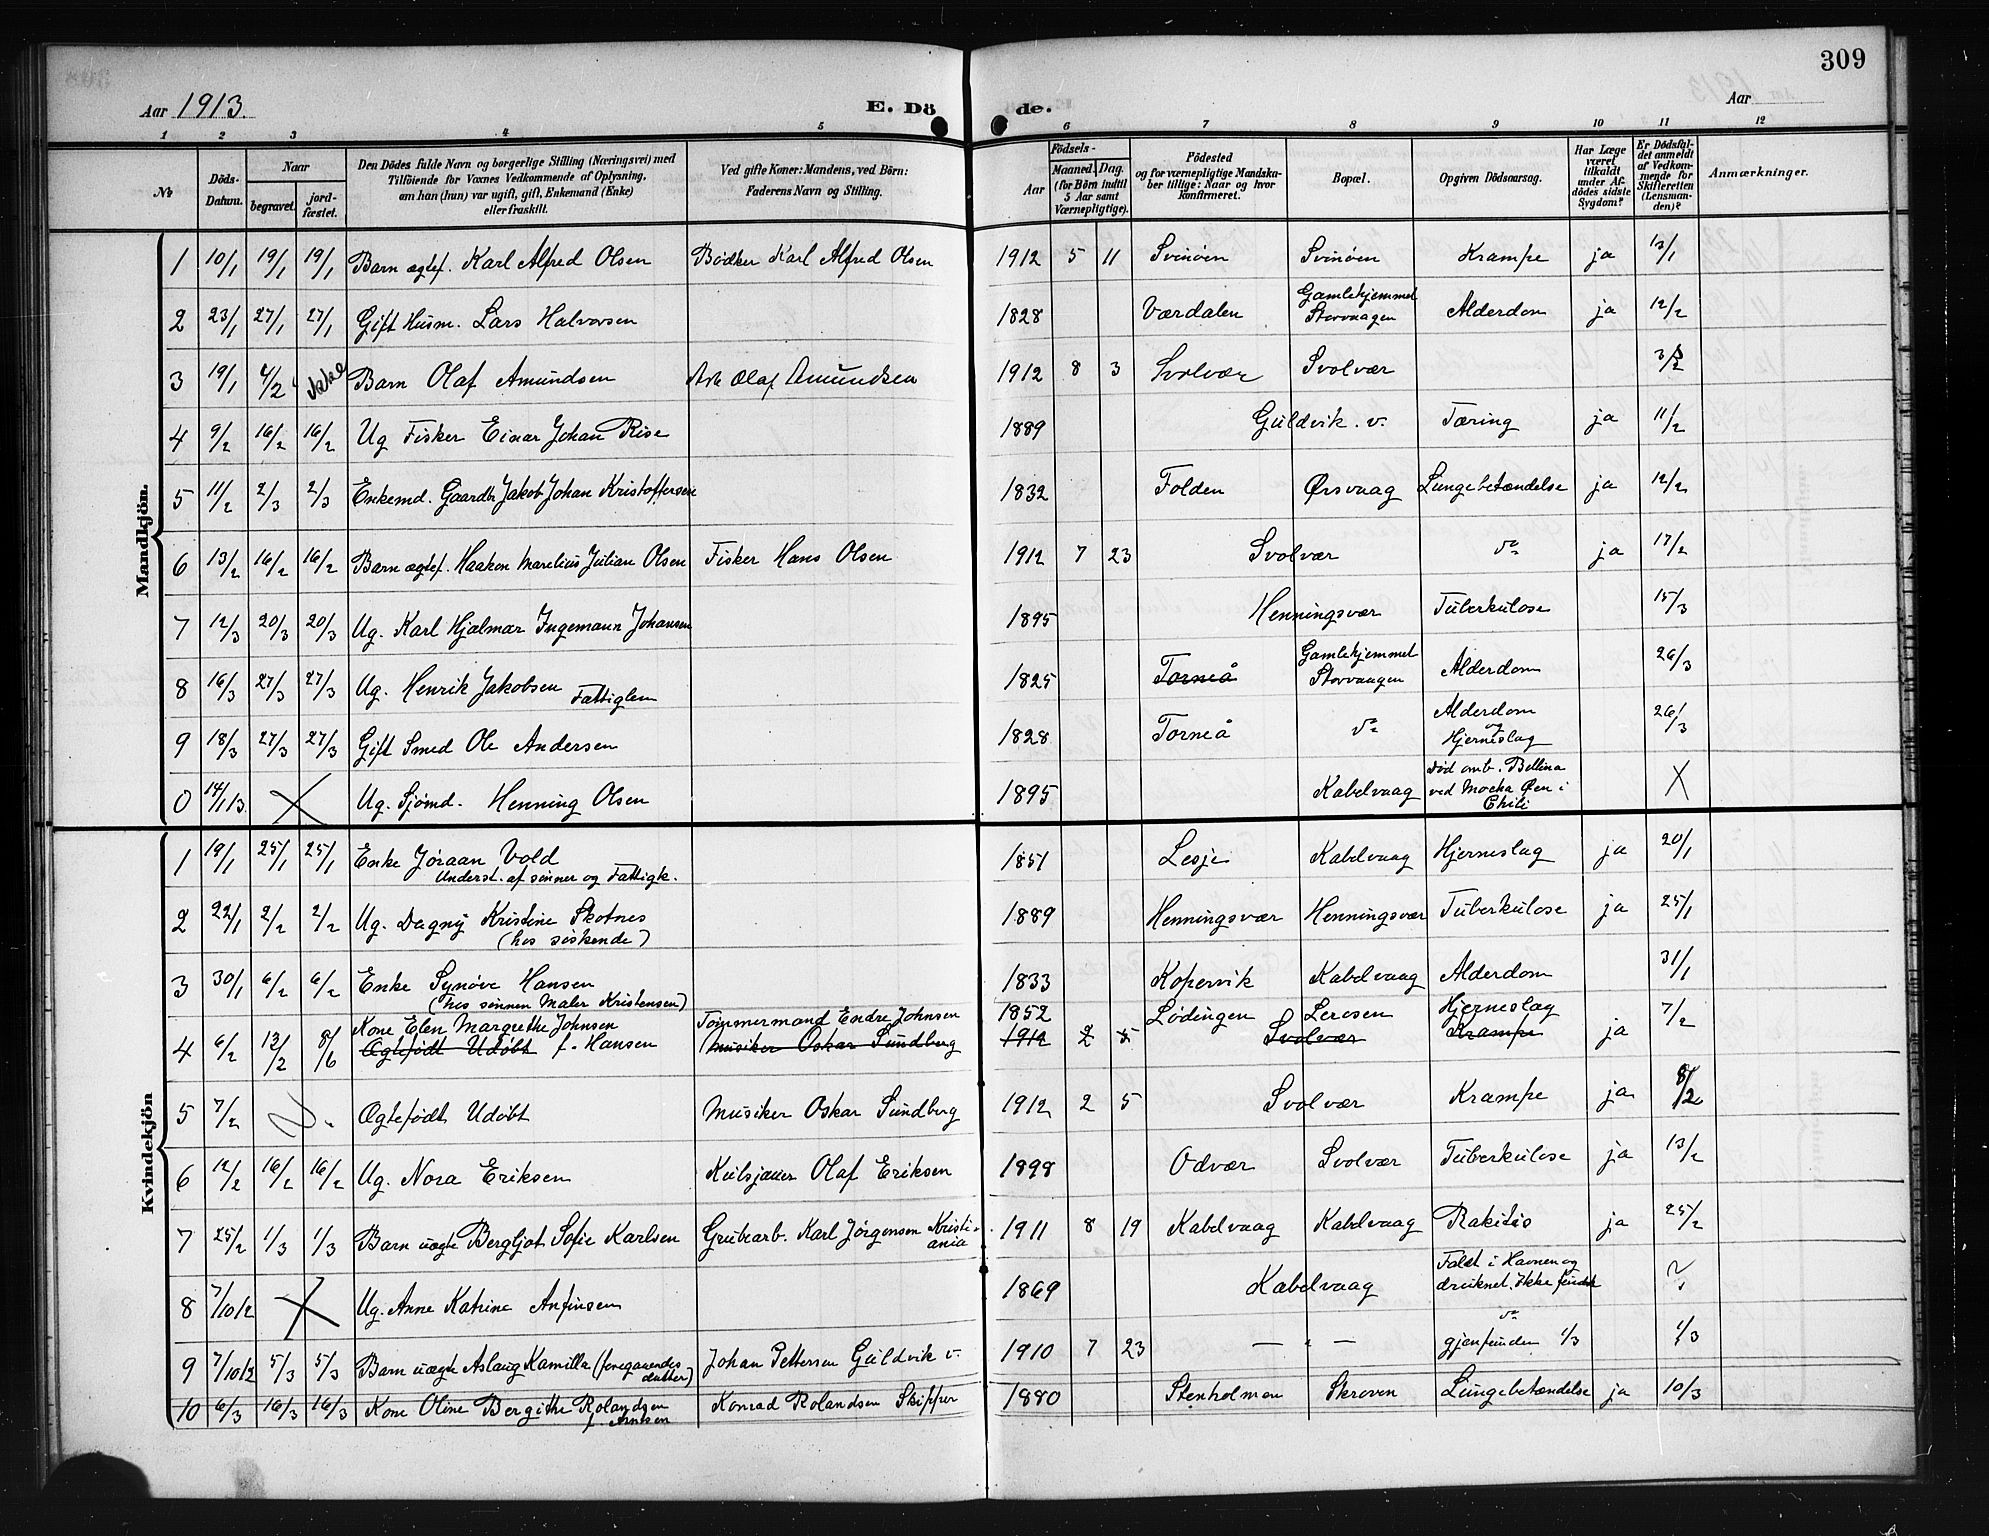 309
Aar 1913. E. Dö de. Aar
1 2 3 4 5 6 7 8 9 10 11 12
№ Döds-Datum. Naar begravet. jord-fæstet. Den Dödes fulde Navn og borgerlige Stilling (Næringsvei) med Tilföiende for Voxnes Vedkommende af Oplysning, om han (hun) var ugift, gift, Enkemand (Enke) eller fraskilt. Ved gifte Koner: Mandens, ved Börn: Faderens Navn og Stilling. Födsels- Aar Maaned. Dag. (for Börn indtil 5 Aar samt Værnepligtige). Födested og for værnepligtige Mandskaber tillige: Naar og hvor konfirmeret. Bopæl. Opgiven Dödsaarsag. Har Læge været tilkaldt under Afdödes sidste Sygdom? Er Dödsfaldet anmeldt af Vedkommende for Skifteretten (Lensmanden)? Anmærkninger.
Mandkjön.
1 10/1 19/1 19/1 Barn ægtef. Karl Alfred Olsen Bødker Karl Alfred Olsen 1912 5 11 Svinøen Svinøen Krampe ja 13/1
2 23/1 27/1 27/1 Gift Husm. Lars Halvorsen 1828 Værdalen Gamlehjemmet Storvaagen Alderdom ja 12/2
3 19/1 4/2 ikke Barn Olaf Amundsen Arb Olaf Amundsen 1912 8 3 Svolvær Svolvær 3/2
4 9/2 16/2 16/2 Ug Fisker Einar Johan Rise 1889 Guldvik. v. Tæring ja 11/2
5 11/2 2/3 2/3 Enkemd. Gaardbr Jakob Johan Kristoffersen 1832 Folden Ørsvaag Lungebetændelse ja 12/2
6 13/2 16/2 16/2 Barn ægtef. Haakon Marelius Julian Olsen Fisker Hans Olsen 1912 7 23 Svolvær do ja 17/2
7 12/3 20/3 20/3 Ug. Karl Hjalmar Ingemann Johansen 1895 Henningsvær Tuberkulose 15/3
8 16/3 27/3 27/3 Ug. Henrik Jakobsen Fattiglem 1825 Torneå Gamlehjemmet Storvaagen Alderdom 26/3
9 18/3 27/3 27/3 Gift Smed Ole Andersen 1828 Torneå do Alderdom og Hjerneslag 26/3
0 14/1 13. X Ug. Sjømd. Henning Olsen 1895 Kabelvaag Død omb. Bellina ved Mocha Øen i Chili X
Kvindekjön
1 19/1 25/1 25/1 Enke Jøraan Vold Underst. af sønner og Fattigk. 1851 Lesje Kabelvaag Hjerneslag ja 20/1
2 22/1 2/2 2/2 Ug. Dagny Kristine Skotnes (hos søskende) 1889 Henningsvær Henningsvær Tuberkulose ja 25/1
3 30/1 6/2 6/2 Enke Synøve Hansen (hos sønnen Maler Kristensen) 1833 Kopervik Kabelvaag Alderdom 31/1
Kone Elen Margrethe Johnsen Tømmermand Endre Johnsen 1852 Lødingen Lerosen Hjerneslag 7/2
4 6/2 13/2 8/6 Ægtefødt Udøbt f. Hansen Musiker Oskar Sundberg 1912 2 5 Svolvær Krampe ja
5 7/2 Ægtefødt Udøbt Musiker Oskar Sundberg 1912 2 5 Svolvær Krampe ja 8/2
6 12/2 16/2 16/2 Ug. Nora Eriksen Kulsjauer Olaf Eriksen 1898 Odvær Svolvær Tuberkulose ja 13/2
7 25/2 1/3 1/3 Barn uægte Bergljot Sofie Karlsen Grubearb. Karl Jørgensen Kristiania 1911 8 19 Kabelvaag Kabelvaag Rakitis ja 25/2
8 7/10 12 X Ug. Anne Katrine Anfinsen 1869 Kabelvaag Faldt i Havnen og druknet. Ikke fundet ?
9 7/10 12 5/3 5/3 Barn uægte Aslaug Kamilla (foregaaendes datter) Johan Pettersen Guldvik v. 1910 7 23 — " — do gjenfunden 1/3 1/3
10 6/3 16/3 16/3 Kone Oline Bergithe Rolandsen f. Arntsen Konrad Rolandsen Skipper 1880 Stenholmen Skroven Lungebetændelse ja 10/3